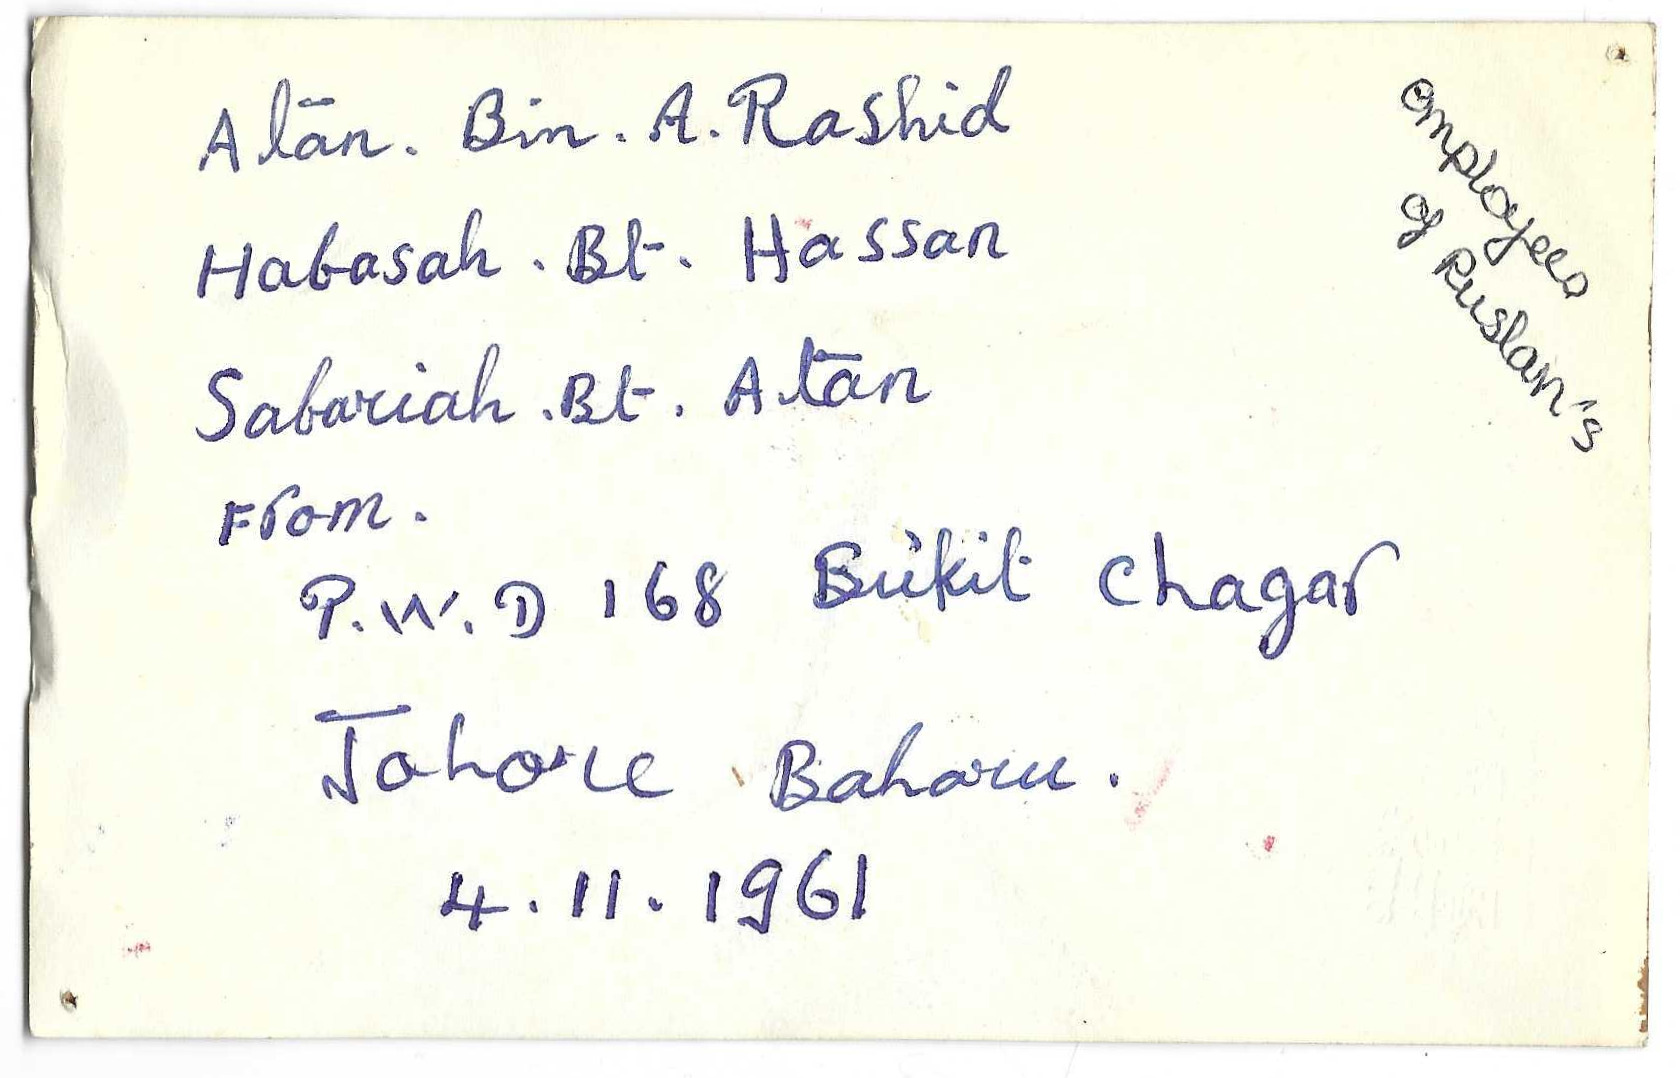 Atan. Bin. A. Rashid
Habasah. Bt. Hassan
Sabariah. Bt. Atan
From.
P.W.D 168 Bukit Chagar
Johore Baharu.
4.11.1961
employees
of Ruslan's